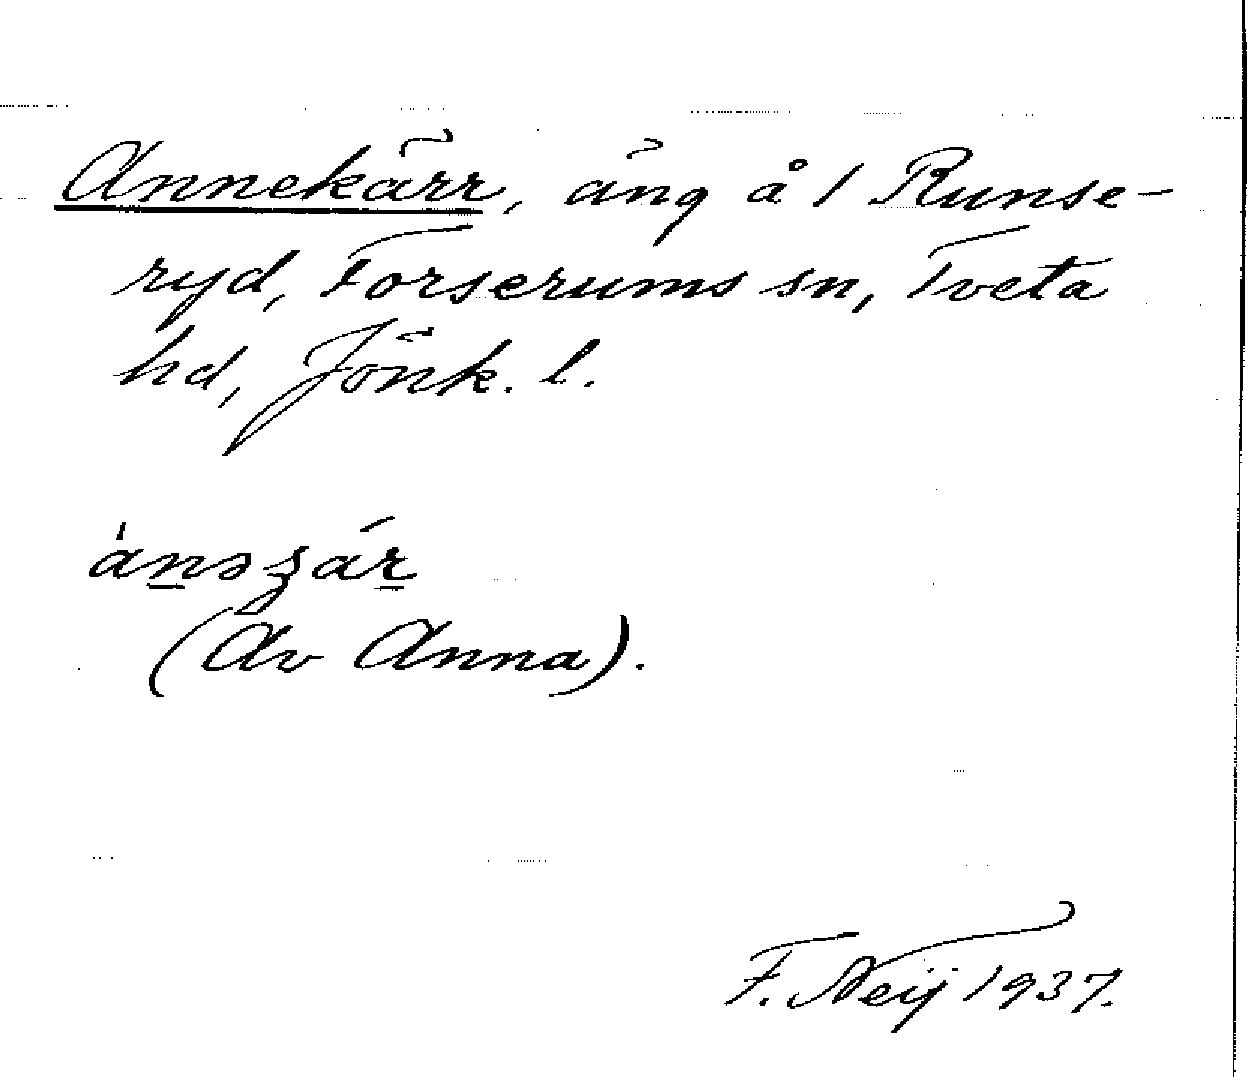 Annekärr, äng å 1 Runse-
ryd, Forserums sn, Tveta
hd, Jönk. l.
(Av Anna).
F. Neij 1937.